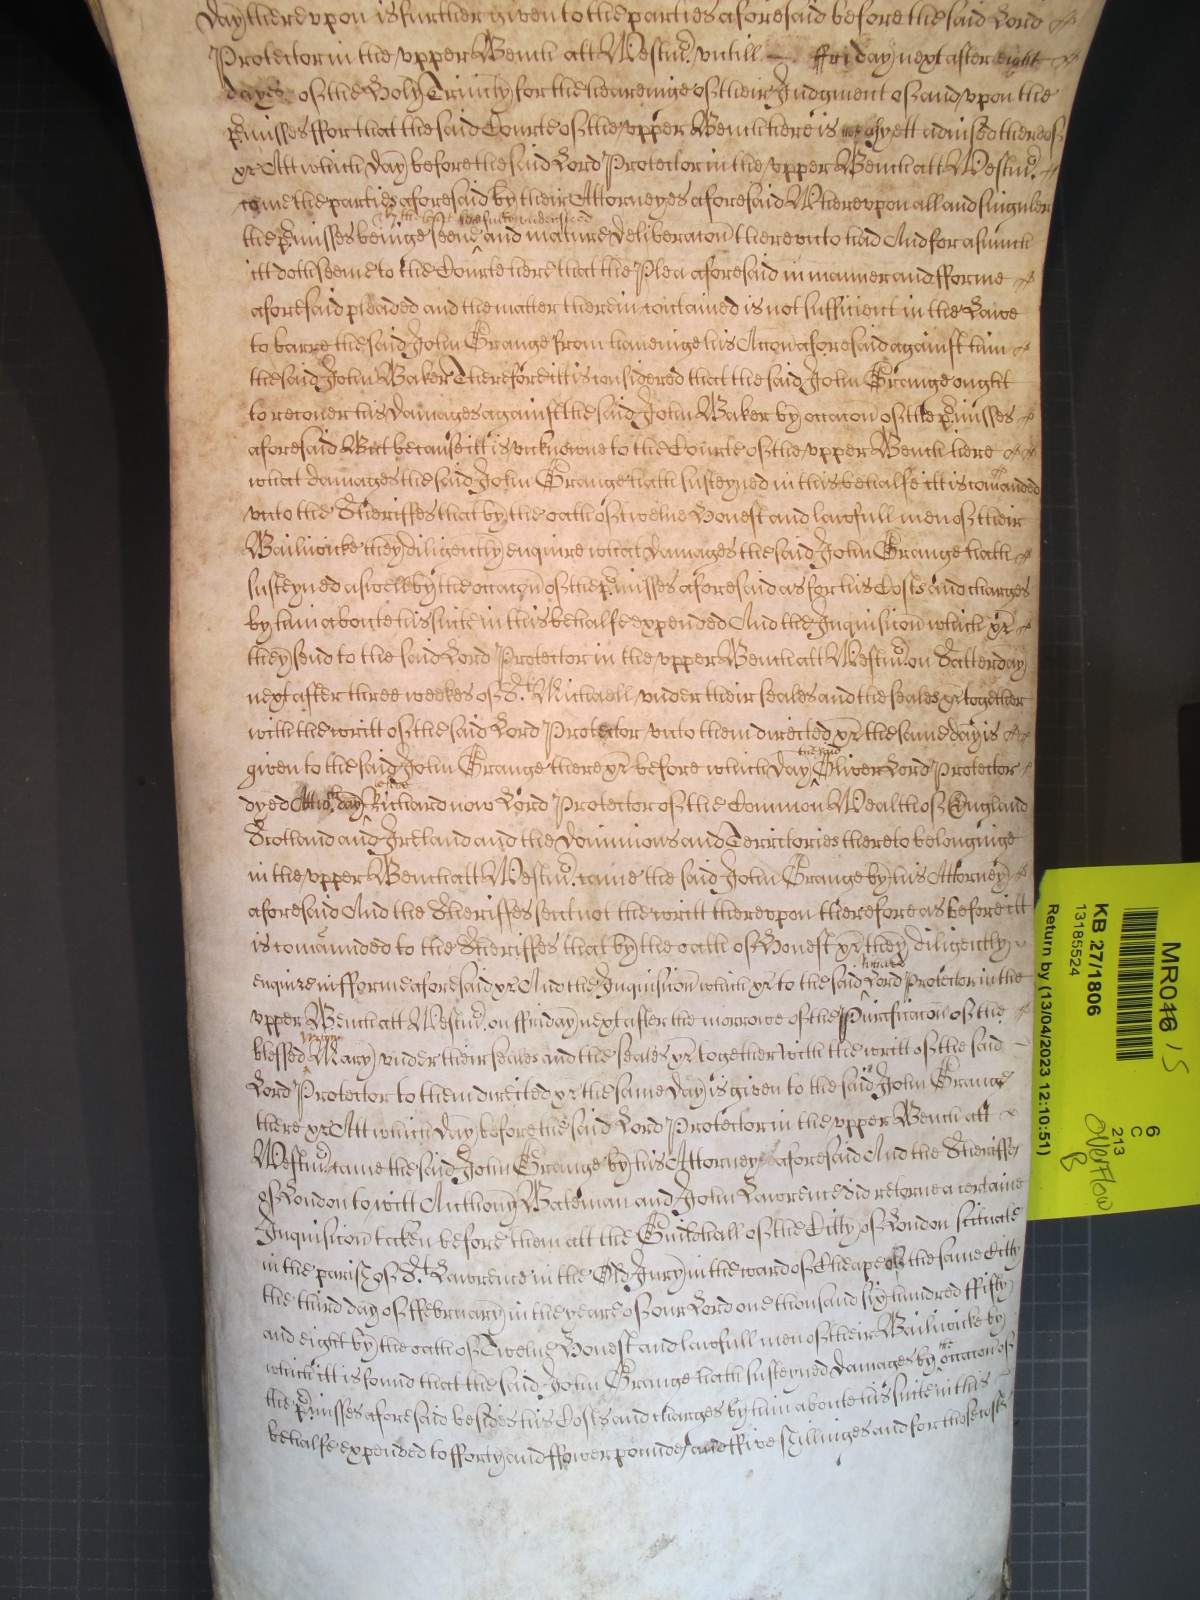 day thereupon is further given to the parties aforesaid before the said Lord
Protector in the vpper Bench att Westmr. vntill — ffriday next after eight
dayes of the Holy Trinity for the heareinge of their Judgment of and vpon the
p̃misses ffor that the said Courte of the vpper Bench here is not yett advised thereof
&c Att which day before the said Lord Protector in the vpper Bench att Westmr.
came the parties aforesaid by their Attorneyes aforesaid Wherevpon all and singuler
the p̃misses beinge seene and by the Court here fully vnderstood and mature deliberac̃on therevnto had And for asmuch
itt doth seeme to the Courte here that the Plea aforesaid in manner and fforme
aforesaid pleaded and the matter therein contained is not sufficient in the Lawe
to barre the said John Grange from haueinge his Acc̃on aforesaid against him
the said John Baker Therefore itt is considered that the said John Grange ought
to recouer his damages against the said John Baker by occac̃on of the p̃misses
aforesaid But because itt is vnknowne to the Courte of the vpper Bench here
what damages the said John Grange hath susteyned in this behalfe itt is com̃anded
vnto the Sheriffes that by the oath of twelue honest and lawfull men of their
Bailiwicke they diligently enquire what damages the said John Grange hath
susteyned aswell by the occac̃on of the p̃misses aforesaid as for his Costs and charges
by him aboute his suite in this behalfe expended And the Inquisic̃on which &c
they send to the said Lord Protector in the vpper Bench att Westmr. on Satterday
next after three weekes of St. Michaell vnder their seales and the seales &c together
with the writt of the said Lord Protector vnto them directed &c the same day is
given to the said John Grange there &c before which day the said Oliver Lord Protector
dyed Att wch. day before Richard now Lord Protector of the Common Wealth of England
Scotland and Ireland and the Dominions and Territories thereto belonginge
in the vpper Bench att Westmr. came the said John Grange by his Attorney
aforesaid And the Sheriffes sent not the writt therevpon therefore as before itt
is com̃aunded to the Sheriffes that by the oath of Honest &c they diligently
enquire in fforme aforesaid &c And the Inquisic̃on which &c to the said Lord Protector in the
vpper Bench att Westmr. on ffriday next after the morrowe of the Purificac̃on of the
blessed Virgin Mary vnder their seales and the seales &c together with the writt of the said
Lord Protector to them directed &c the same day is given to the said John Grange
there &c Att which day before the said Lord Protector in the vpper Bench att
Westmr. came the said John Grange by his Attorney aforesaid And the Sheriffes
of London to witt Anthony Bateman and John Lawrence did returne a certaine
Inquisic̃on taken before them att the Guildhall of the Citty of London scituate
in the parish of St. Lawrence in the Old Jury in the ward of Cheape of the same Citty
the third day of ffebruary in the yeare of our Lord one thousand six hundred ffifty
and eight by the oath of Twelue Honest and lawfull men of their Bailiwicke by
which itt is found that the said John Grange hath susteyned damages by the occac̃on of
the p̃misses aforesaid besides his Costs and charges by him aboute his suite in this
behalfe expended to fforty and ffower poundes and ffive shillinges and for those costs
MR046 / 5
KB 27/1806
13185524
Return by (13/04/2023 12:10:51)
6
C
213
Overflow
B